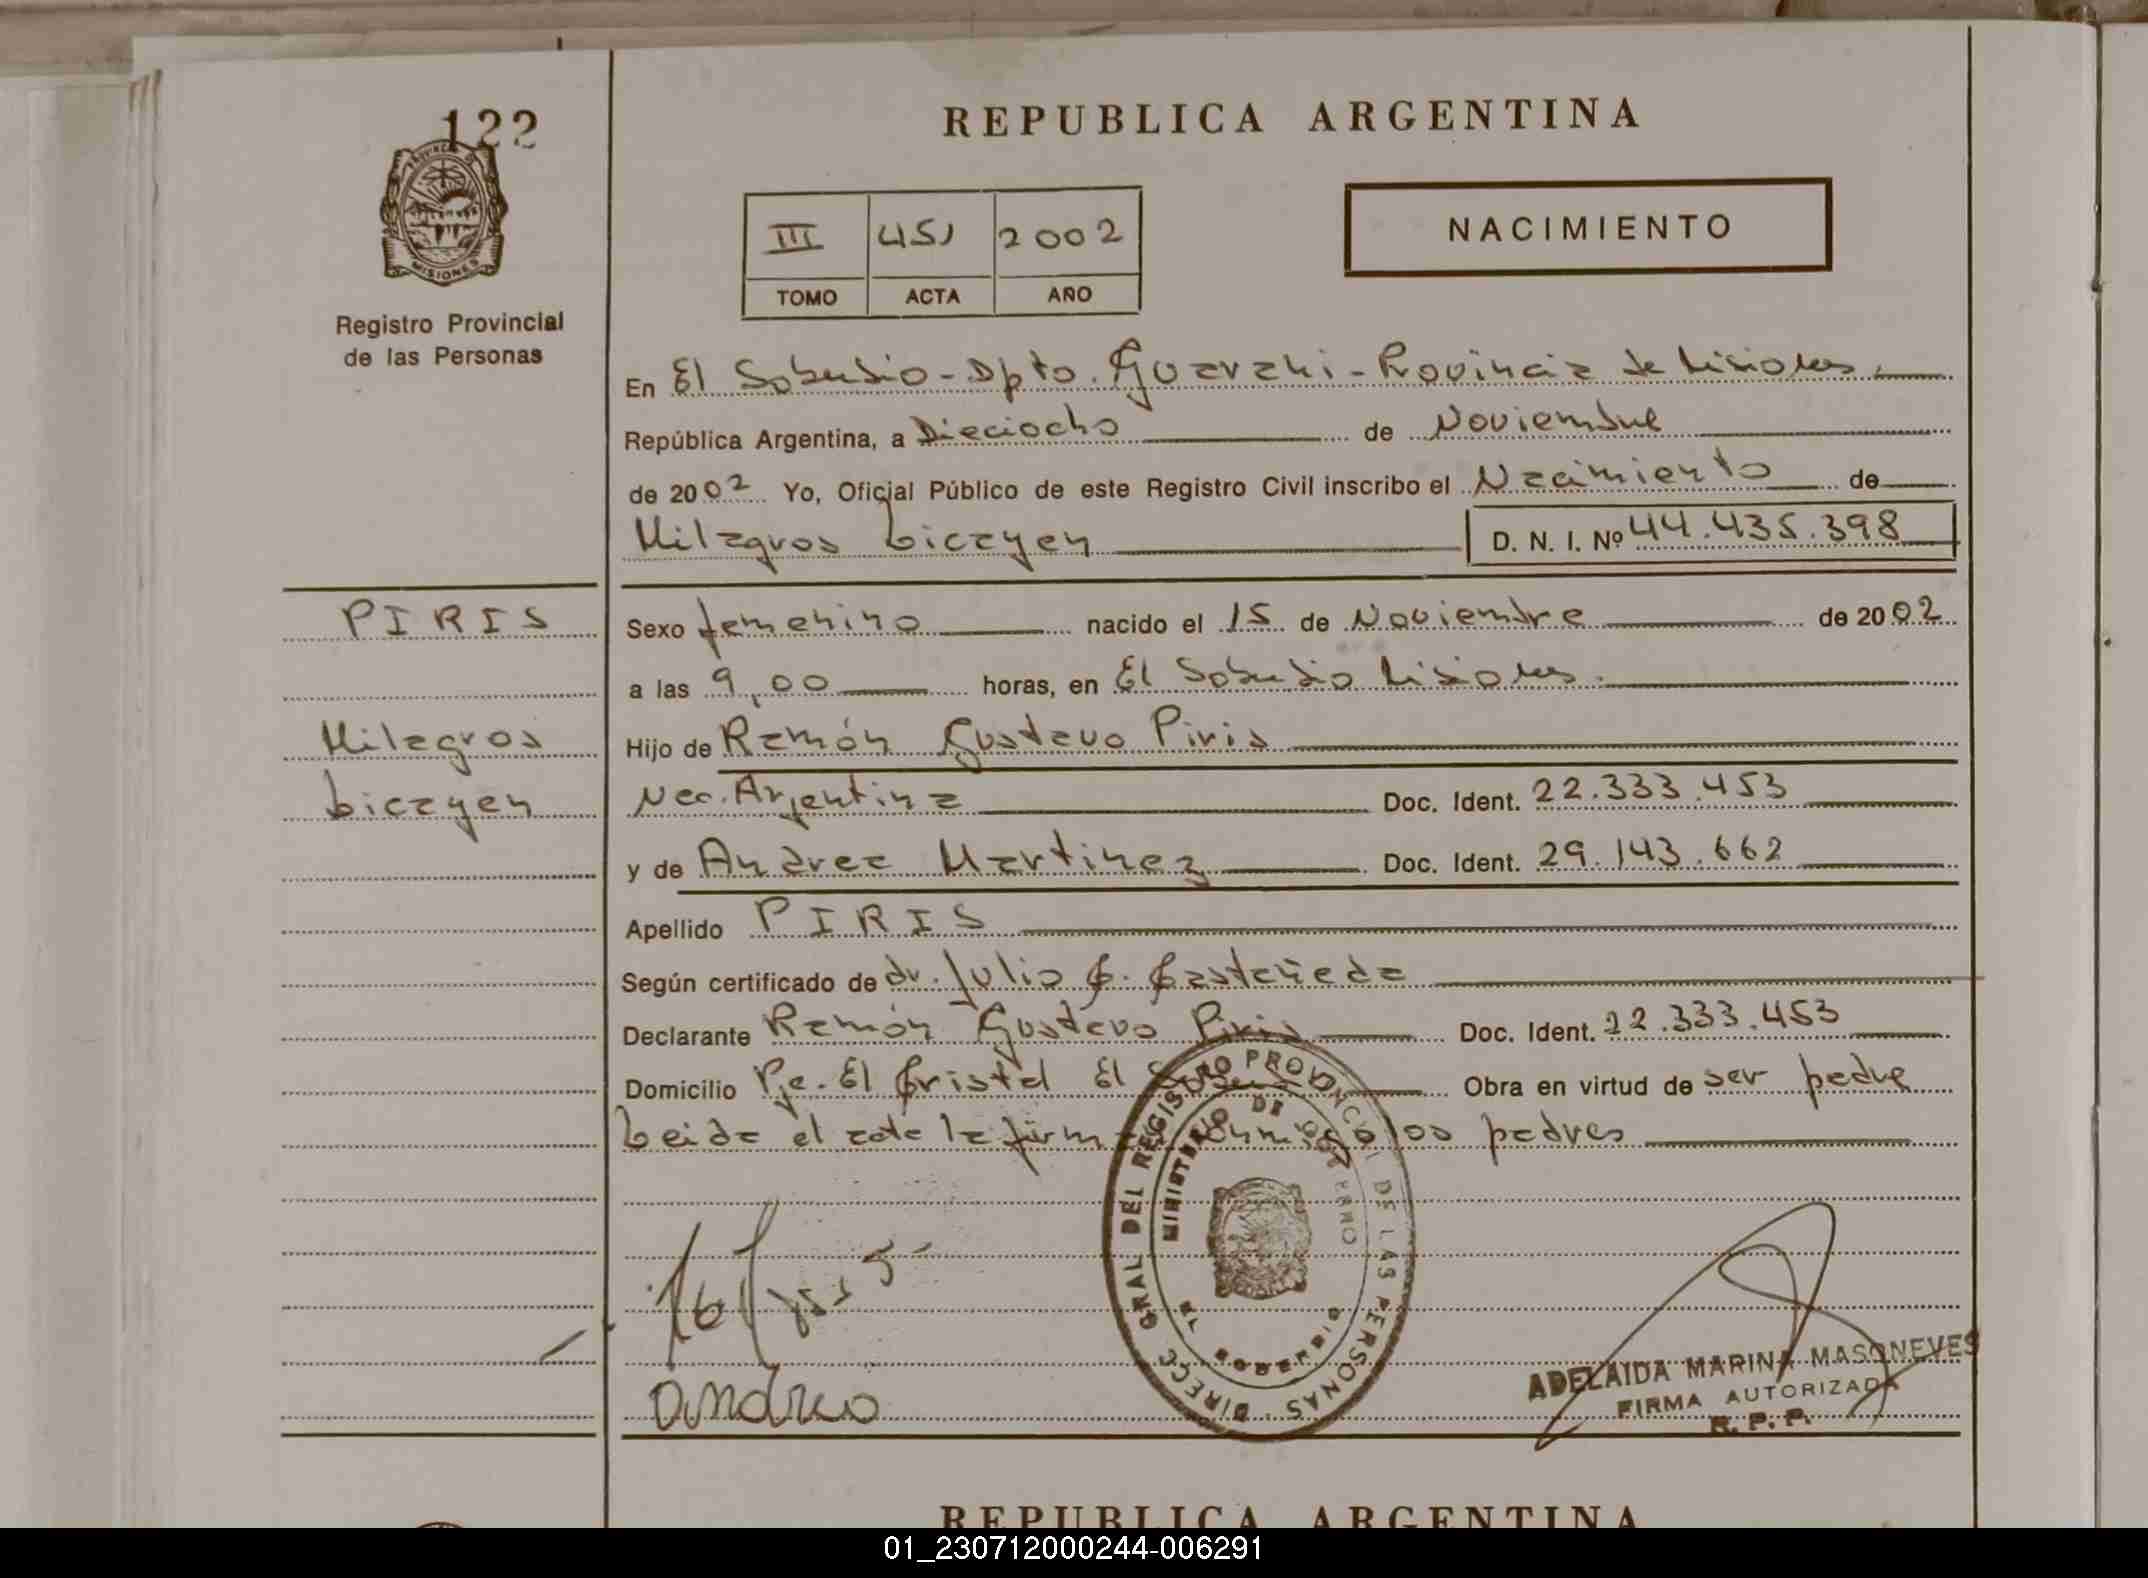 122
REPUBLICA ARGENTINA
PROVINCIA DE
MISIONES
Registro Provincial
de las Personas
III 451 2002
TOMO ACTA AÑO
NACIMIENTO
En El Soberbio - Dpto. Guarani - Provincia de Misiones.
República Argentina, a Dieciocho de Noviembre
de 2002 Yo, Oficial Público de este Registro Civil inscribo el Nacimiento de
Milagros Licayen D. N. I. Nº 44.435.398
PIRIS
Milagros
Licayen
Sexo femenino nacido el 15 de Noviembre de 2002
a las 9,00 horas, en El Soberbio Misiones.
Hijo de Ramón Gustavo Piris
Nac. Argentina Doc. Ident. 22.333.453
y de Andrea Martinez Doc. Ident. 29.143.662
Apellido PIRIS
Según certificado de dr. Julio C. Castañeda
Declarante Ramón Gustavo Piris Doc. Ident. 22.333.453
Domicilio Pje. El Cristal El Soberbio Obra en virtud de ser padre
Leida el acta la firman conmigo los padres
DIRECC. GRAL DEL REGISTRO PROVINCIAL DE LAS PERSONAS
MINISTERIO DE GOBIERNO
EL SOBERBIO
andrea
ADELAIDA MARINA MASONEVES
FIRMA AUTORIZADA
R. P. P.
REPUBLICA ARGENTINA
01_230712000244-006291